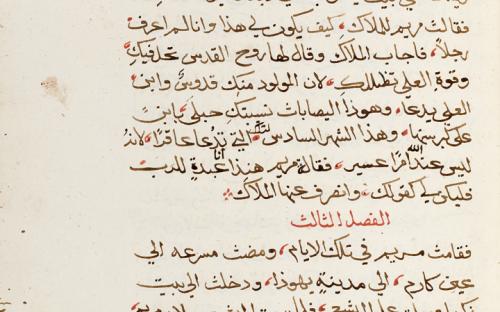 فقالت مريم للملاك، كيف يكون لي هذا وانا لم اعرف
رجلاً، فاجاب الملاك وقال لها روح القدس تحل فيكِ
وقوة العلي تظللكِ، لان المولود منك قدوسٌ وابن
العلي يدعا، وهوذا اليصابات نسيبتك حبلي بابنٍ
علي كبر سنها، وهذا الشهر السادس لتلك التي تدعا عاقراً، لانهُ
ليس عند الله امراً عسير، فقالت مريم هنذا انا عبدةٍ للرب
فليكن لي كقولك، وانصرف عنها الملاك
الفصل الثالث
فقامت مريم في تلك الايام، ومضت مسرعه الي
عين كارم، الي مدينة يهوذا، ودخلت الي بيت